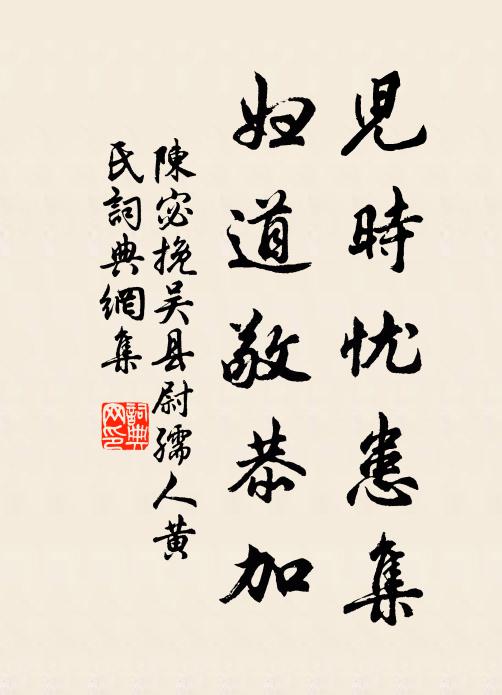 児時忧患集
妇道敬恭加
陳宓挽吴县尉孺人黄
氏詞典網集
詞典网印